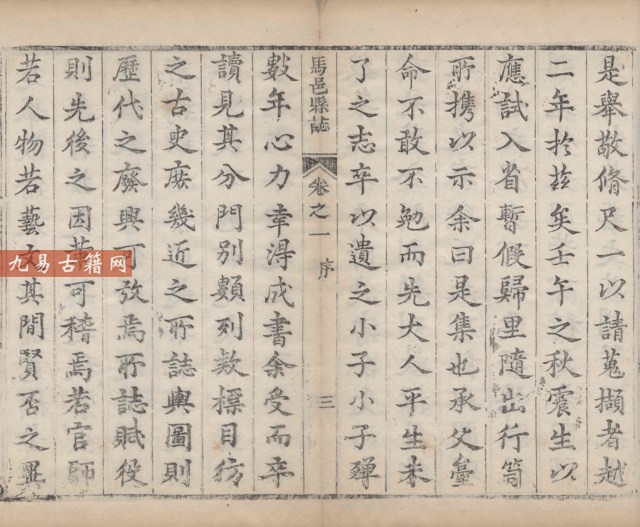 是舉敬脩尺一以請蒐擷者越
二年於茲矣壬午之秋震生以
應試入省暫假歸里隨出行笥
所携以示余曰是集也承父臺
命不敢不勉而先大人平生未
了之志卒以遺之小子小子殫
馬邑縣誌
卷之一 序
三
數年心力幸得成書余受而卒
讀見其分門別類列款標目彷
之古史庶幾近之所誌輿圖則
歷代之廢興可攷焉所誌賦役
則先後之因革可稽焉若官師
若人物若藝文其間賢否之異
九易古籍网